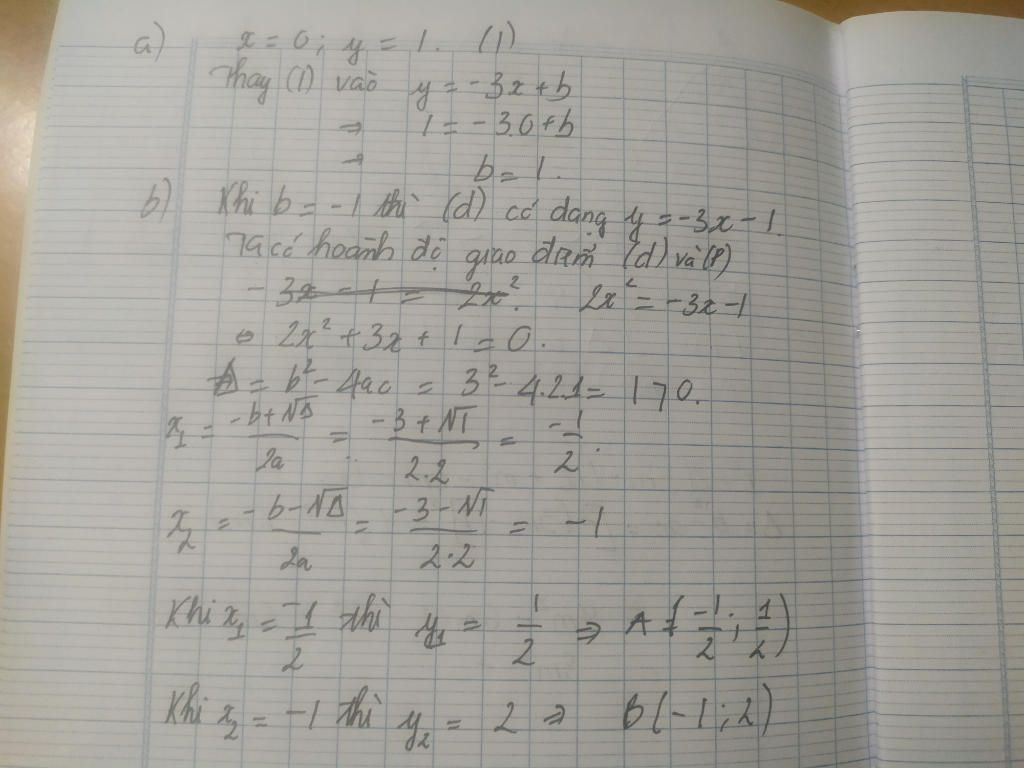 a) x = 0; y = 1. (1)
Thay (1) vào y = -3x + b
⇒ 1 = -3.0 + b
→ b = 1.
b) Khi b = -1 thì (d) có dạng y = -3x - 1.
Ta có hoành độ giao điểm (d) và (P)
- 3x - 1 = 2x². 2x² = -3x - 1
⇔ 2x² + 3x + 1 = 0.
Δ = b² - 4ac = 3² - 4.2.1 = 1 > 0.
x₁ = (-b + √Δ)/2a = (-3 + √1)/2.2 = -1/2.
x₂ = (-b - √Δ)/2a = (-3 - √1)/2.2 = -1
Khi x₁ = -1/2 thì y₁ = 1/2 ⇒ A (-1/2; 1/2)
Khi x₂ = -1 thì y₂ = 2 ⇒ B (-1; 2)